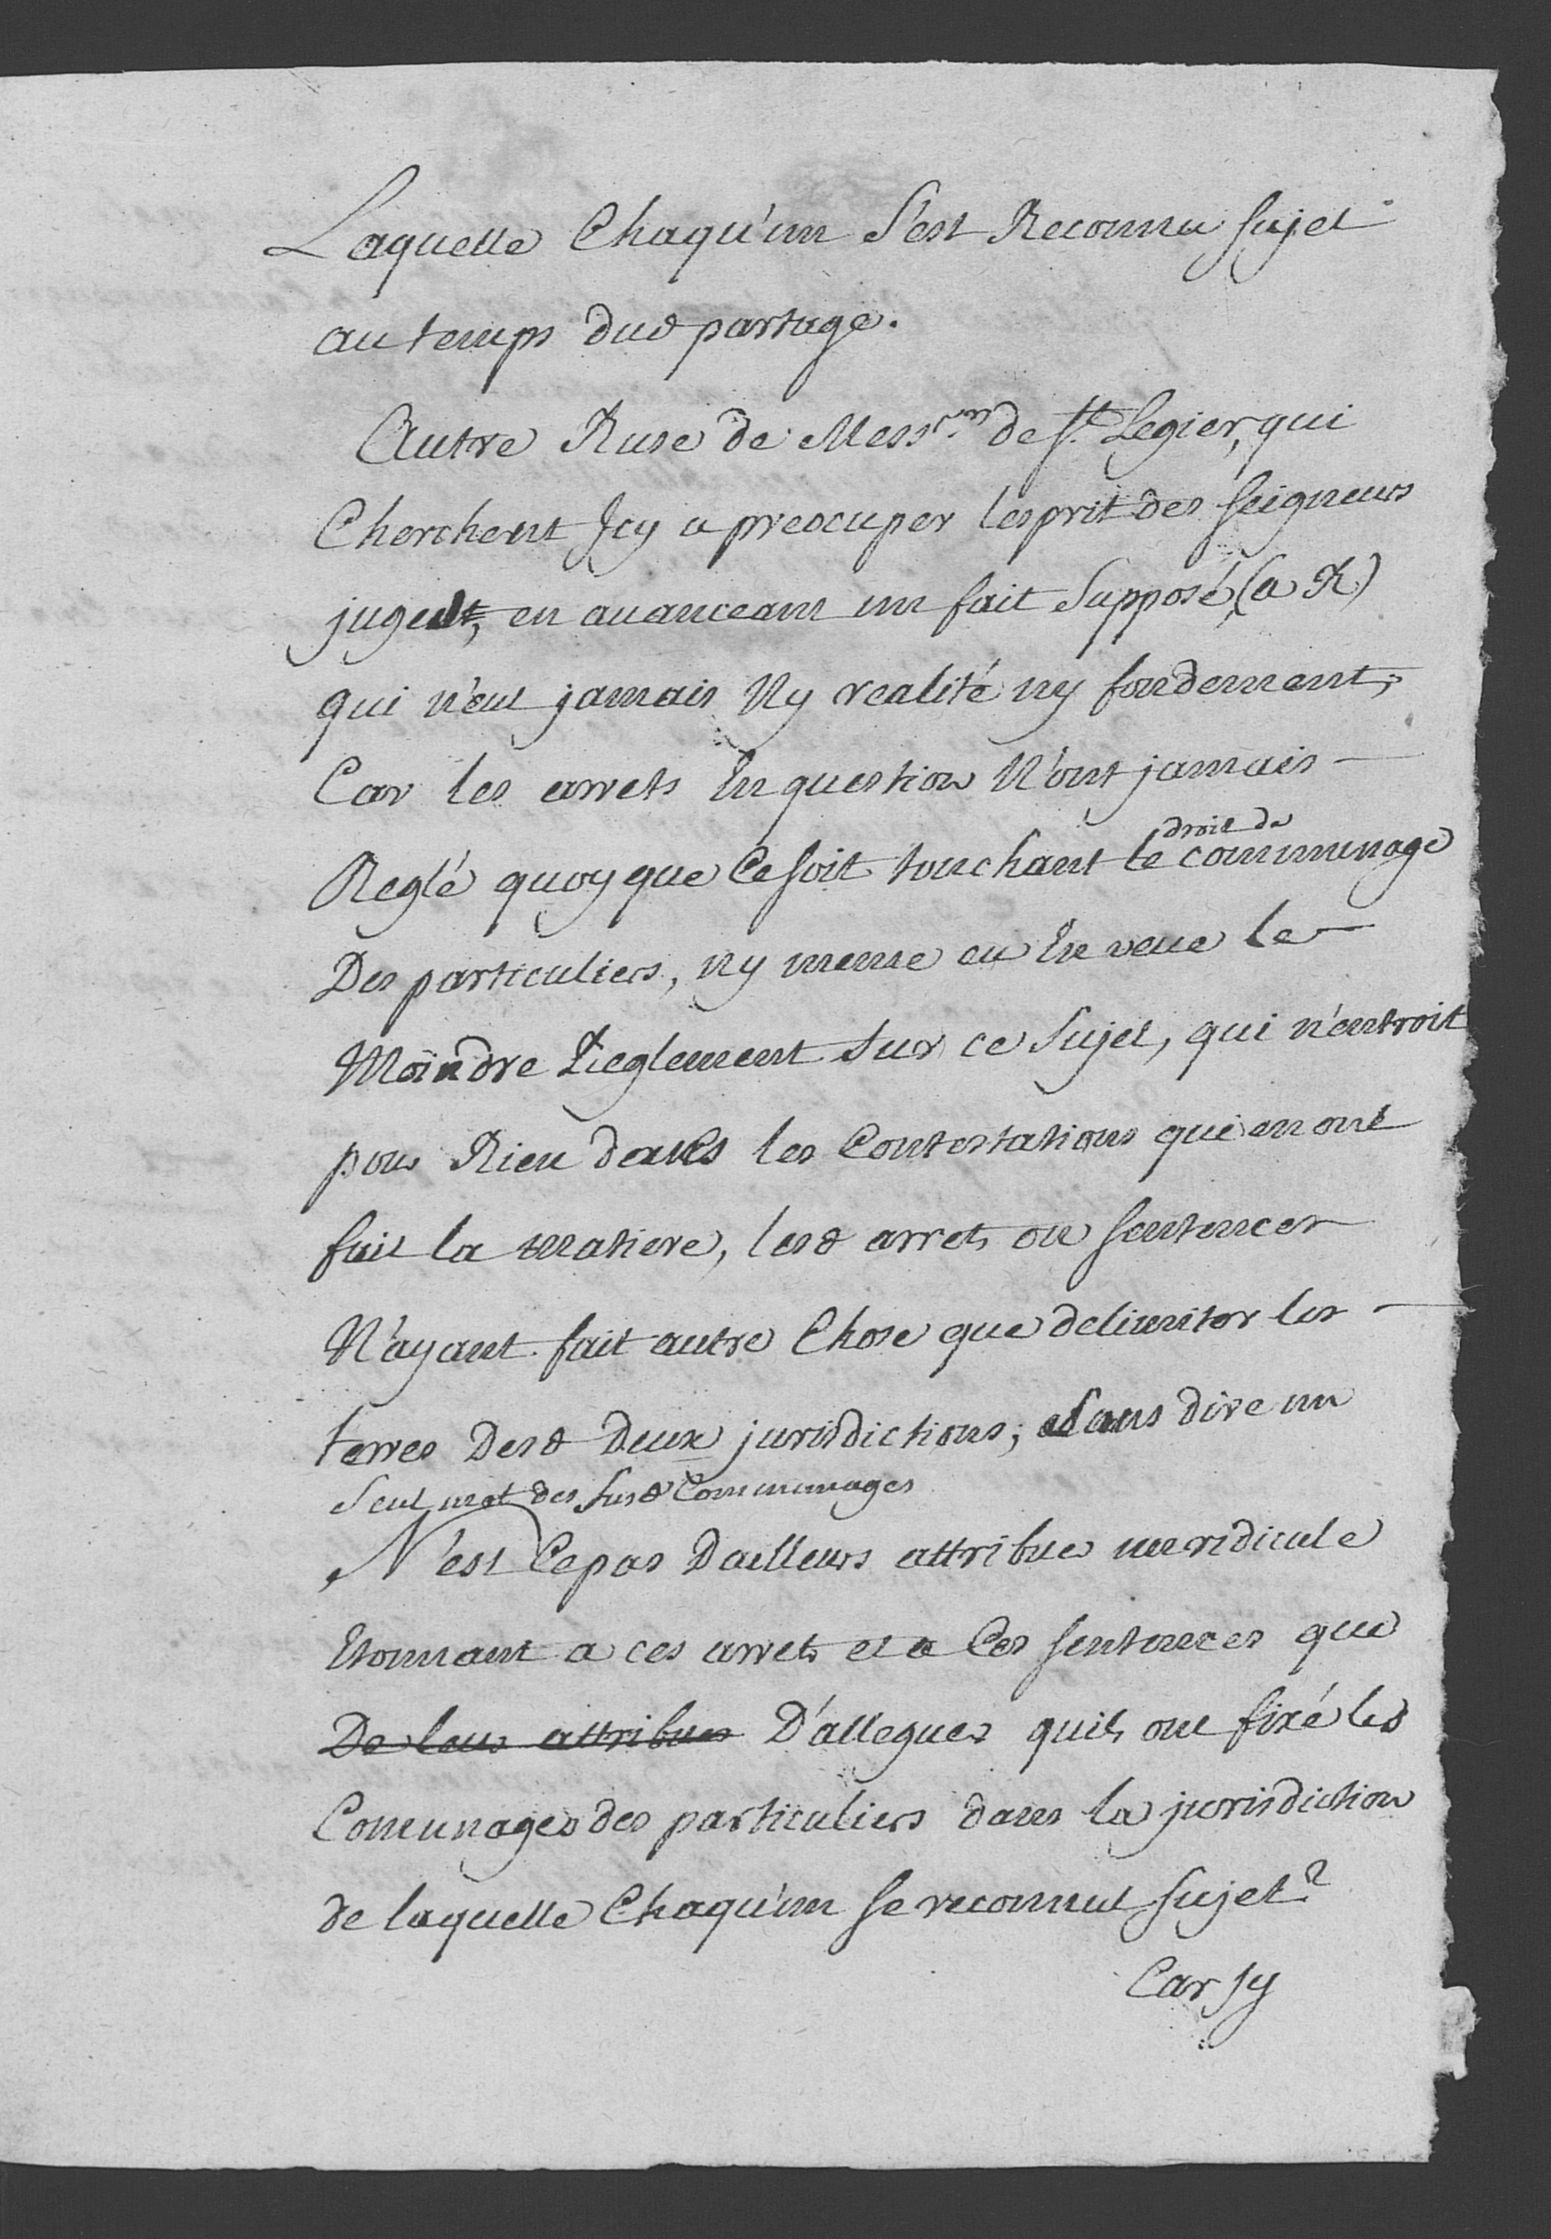 Laquelle Chaqu'un S'est Reconnu Sujet
au temps dud partage.
Autre Ruse de Messrs de St. Legier, qui
Cherchent Icy a preocuper lesprit des Seigneurs
juges, en avanceant un fait Supposé, (a R)
qui n'eut jamais Ny realité ny fondement,
Car les arrets En question N'ont jamais
Reglé quoy que Ce soit touchant le droit de communage
Des particuliers, ny meme eu En veue le
Moindre Reglement Sur ce Sujet, qui n'entroit
pour Rien dans les Contestations qui en ont
fait la matiere, lesd arrets ou Sentences
N'ayant fait autre Chose que delimiter les
terres Desd Deux jurisdictions; Sans dire un
Seul mot des Susd Communages
N'est Ce pas Dailleurs attribuer un ridicule
Etonnant a ces arrets et a Ces Sentences que
De leur attribuer D'alleguer quils ont fixé les
Comunages des particuliers dans la jurisdiction
de laquelle Chaqu'un se reconnut Sujet?
Car sy